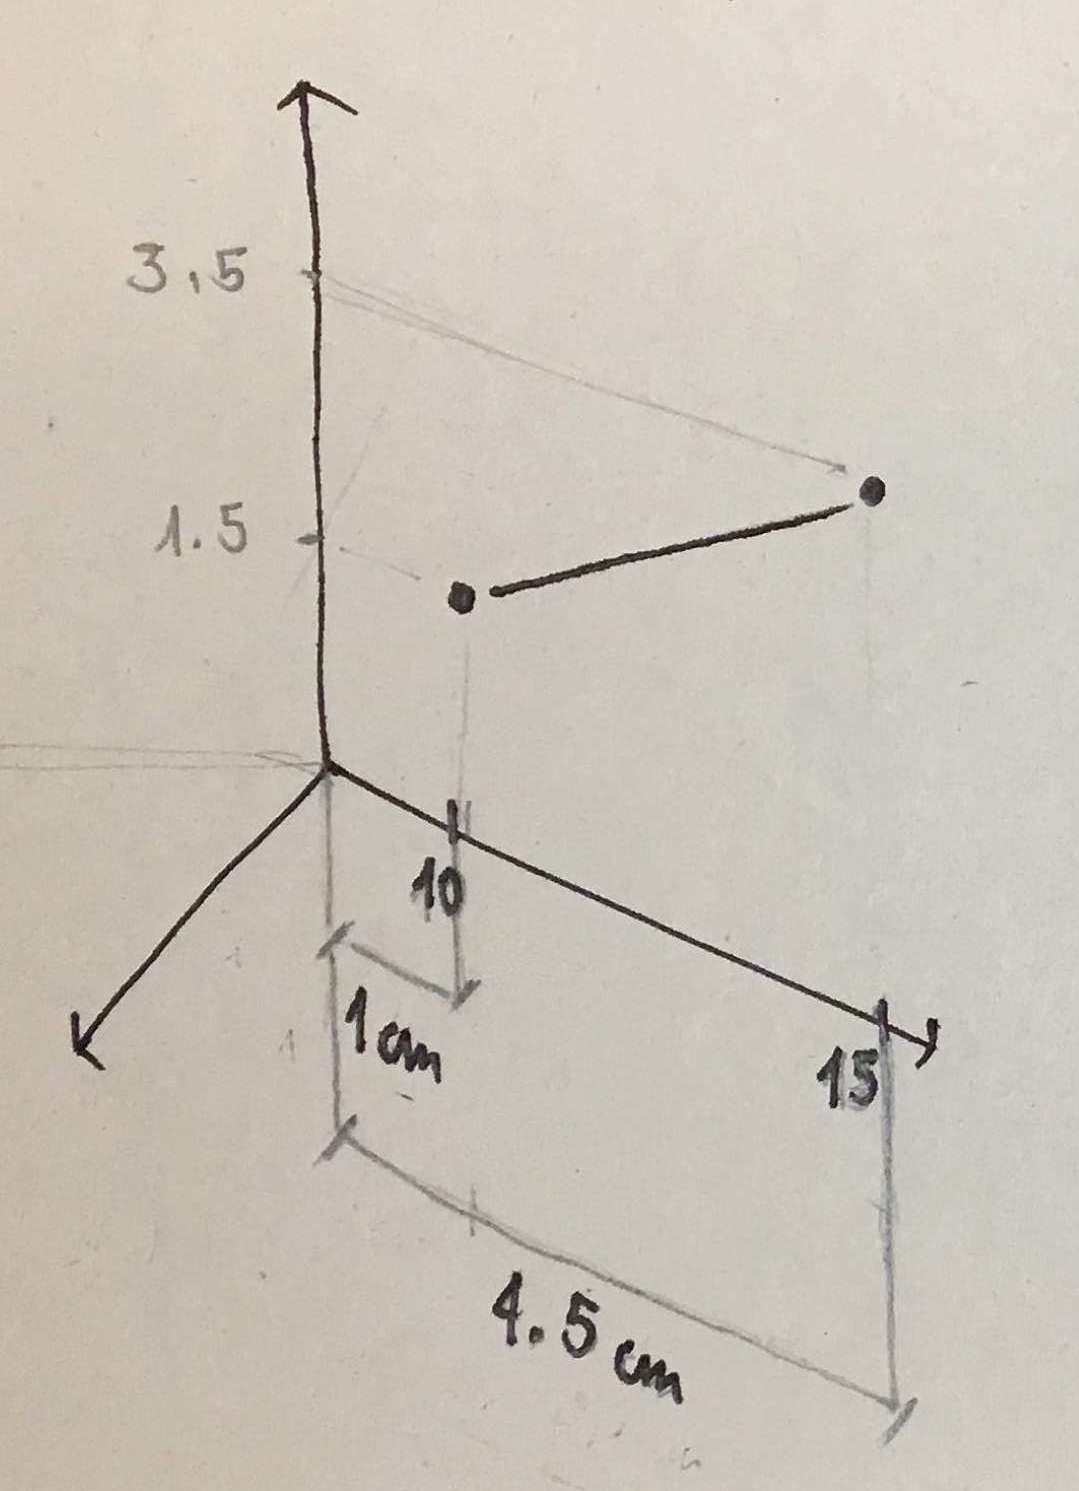 3.5
1.5
10
1cm
15
4.5cm